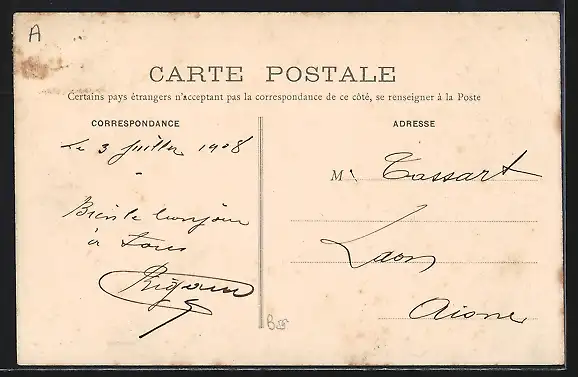 A
CARTE POSTALE
Certains pays étrangers n'acceptant pas la correspondance de ce côté, se renseigner à la Poste
CORRESPONDANCE
Le 3 juillet 1908
Bien le bonjour
à tous
ADRESSE
M. Tassart
Laon
Aisne